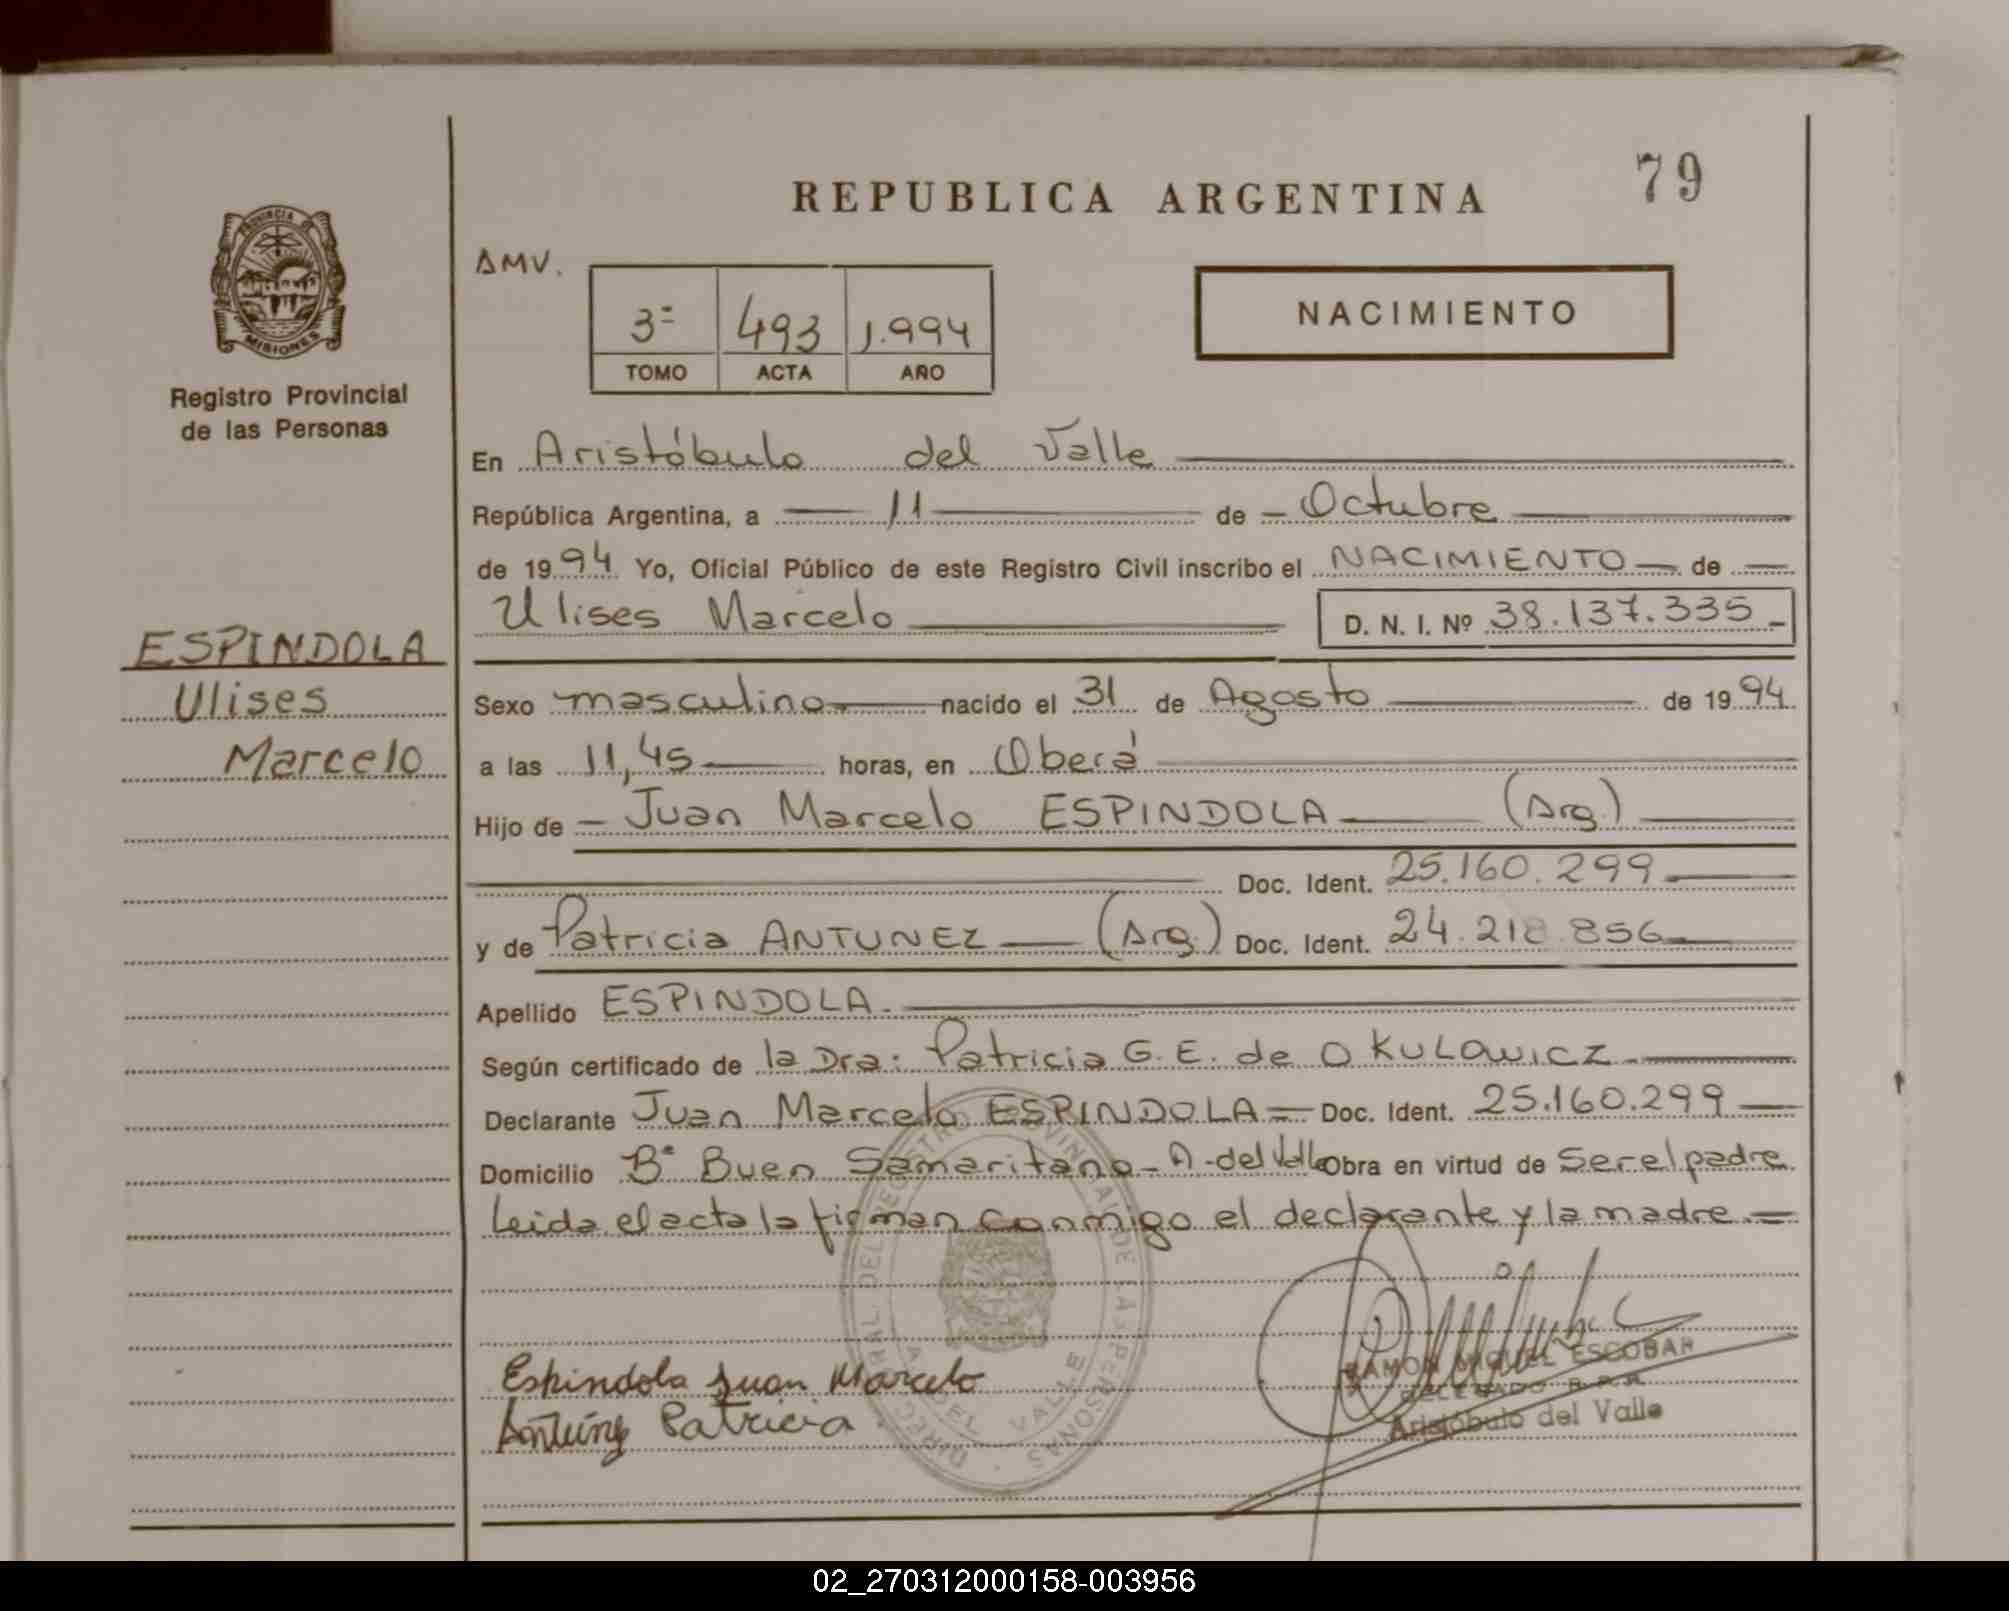 79
REPUBLICA ARGENTINA
AMV.
3ª 493 1.994
TOMO ACTA AÑO
NACIMIENTO
PROVINCIA DE MISIONES
Registro Provincial
de las Personas
ESPINDOLA
Ulises
Marcelo
En Aristóbulo del Valle
República Argentina, a 11 de Octubre
de 1994 Yo, Oficial Público de este Registro Civil inscribo el NACIMIENTO de
Ulises Marcelo D. N. I. Nº 38.137.335
Sexo masculino nacido el 31 de Agosto de 1994
a las 11,45 horas, en Oberá
Hijo de Juan Marcelo ESPINDOLA (Arg.)
Doc. Ident. 25.160.299
y de Patricia ANTUNEZ (Arg.) Doc. Ident. 24.218.856
Apellido ESPINDOLA.
Según certificado de la Dra: Patricia G. E. de OKULOWICZ
Declarante Juan Marcelo ESPINDOLA Doc. Ident. 25.160.299
Domicilio Bº Buen Samaritano - A. del Valle Obra en virtud de Ser el padre
Leida el acta la firman conmigo el declarante y la madre.
Espindola Juan Marcelo
Antúnez Patricia
RAMON MIGUEL ESCOBAR
DELEGADO R.P.P.
Aristóbulo del Valle
DIREC. GRAL. DEL REGISTRO PROVINCIAL DE LAS PERSONAS
A. DEL VALLE
02_270312000158-003956